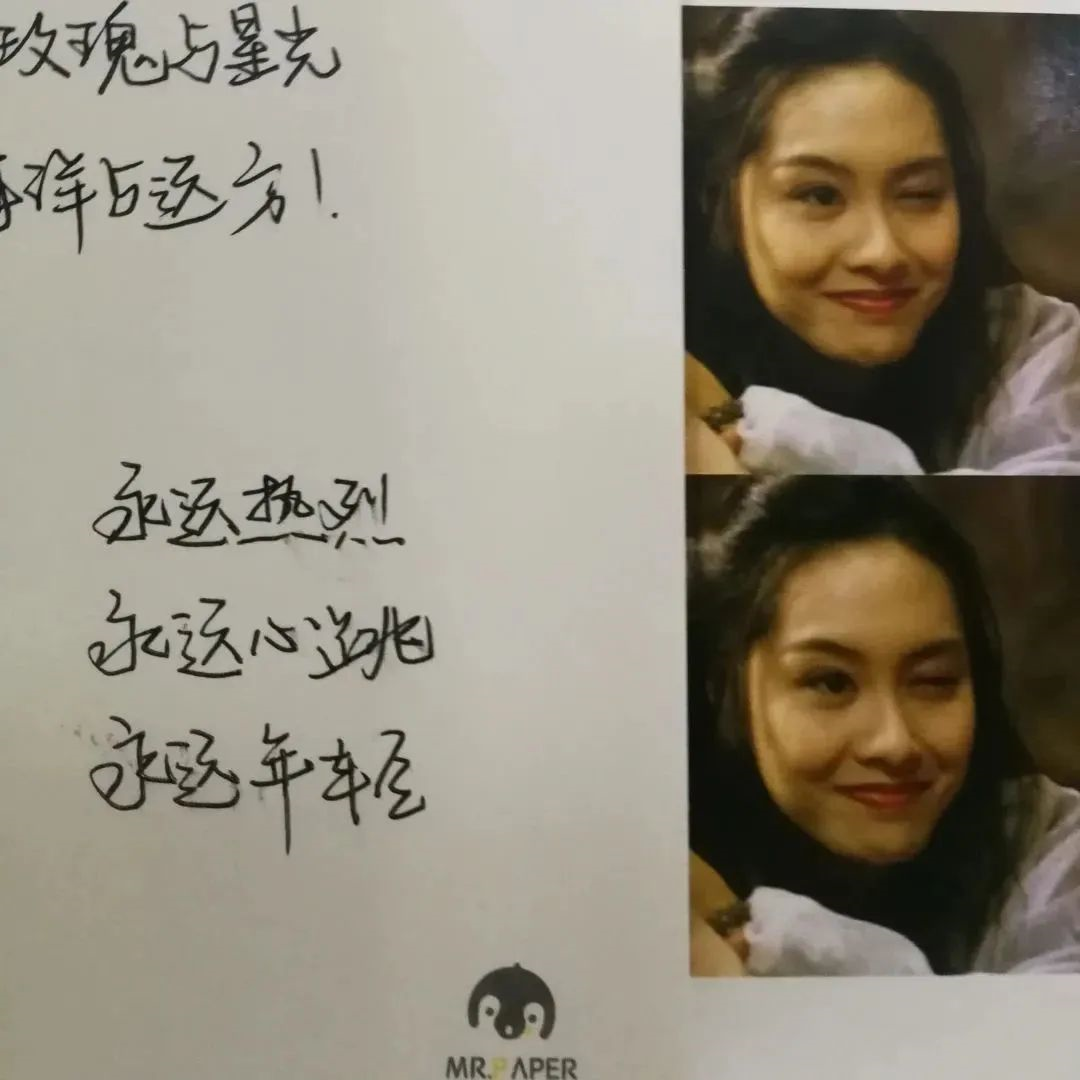 玫瑰与星光
海洋与远方！
永远热烈
永远心跳
永远年轻
MR.PAPER